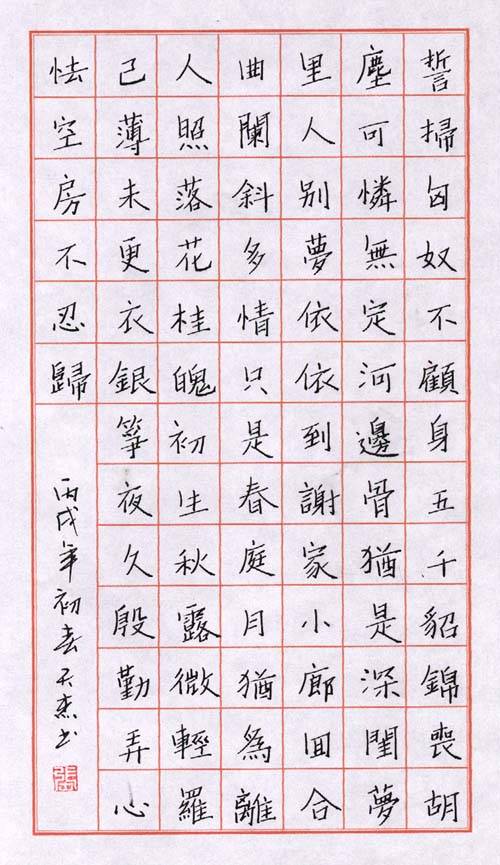 誓掃匈奴不顧身五千貂錦喪胡
塵可憐無定河邊骨猶是深閨夢
里人別夢依依到謝家小廊回合
曲闌斜多情只是春庭月猶為離
人照落花桂魄初生秋露微輕羅
己薄未更衣銀箏夜久殷勤弄心
怯空房不忍歸
丙戌年初春天杰书